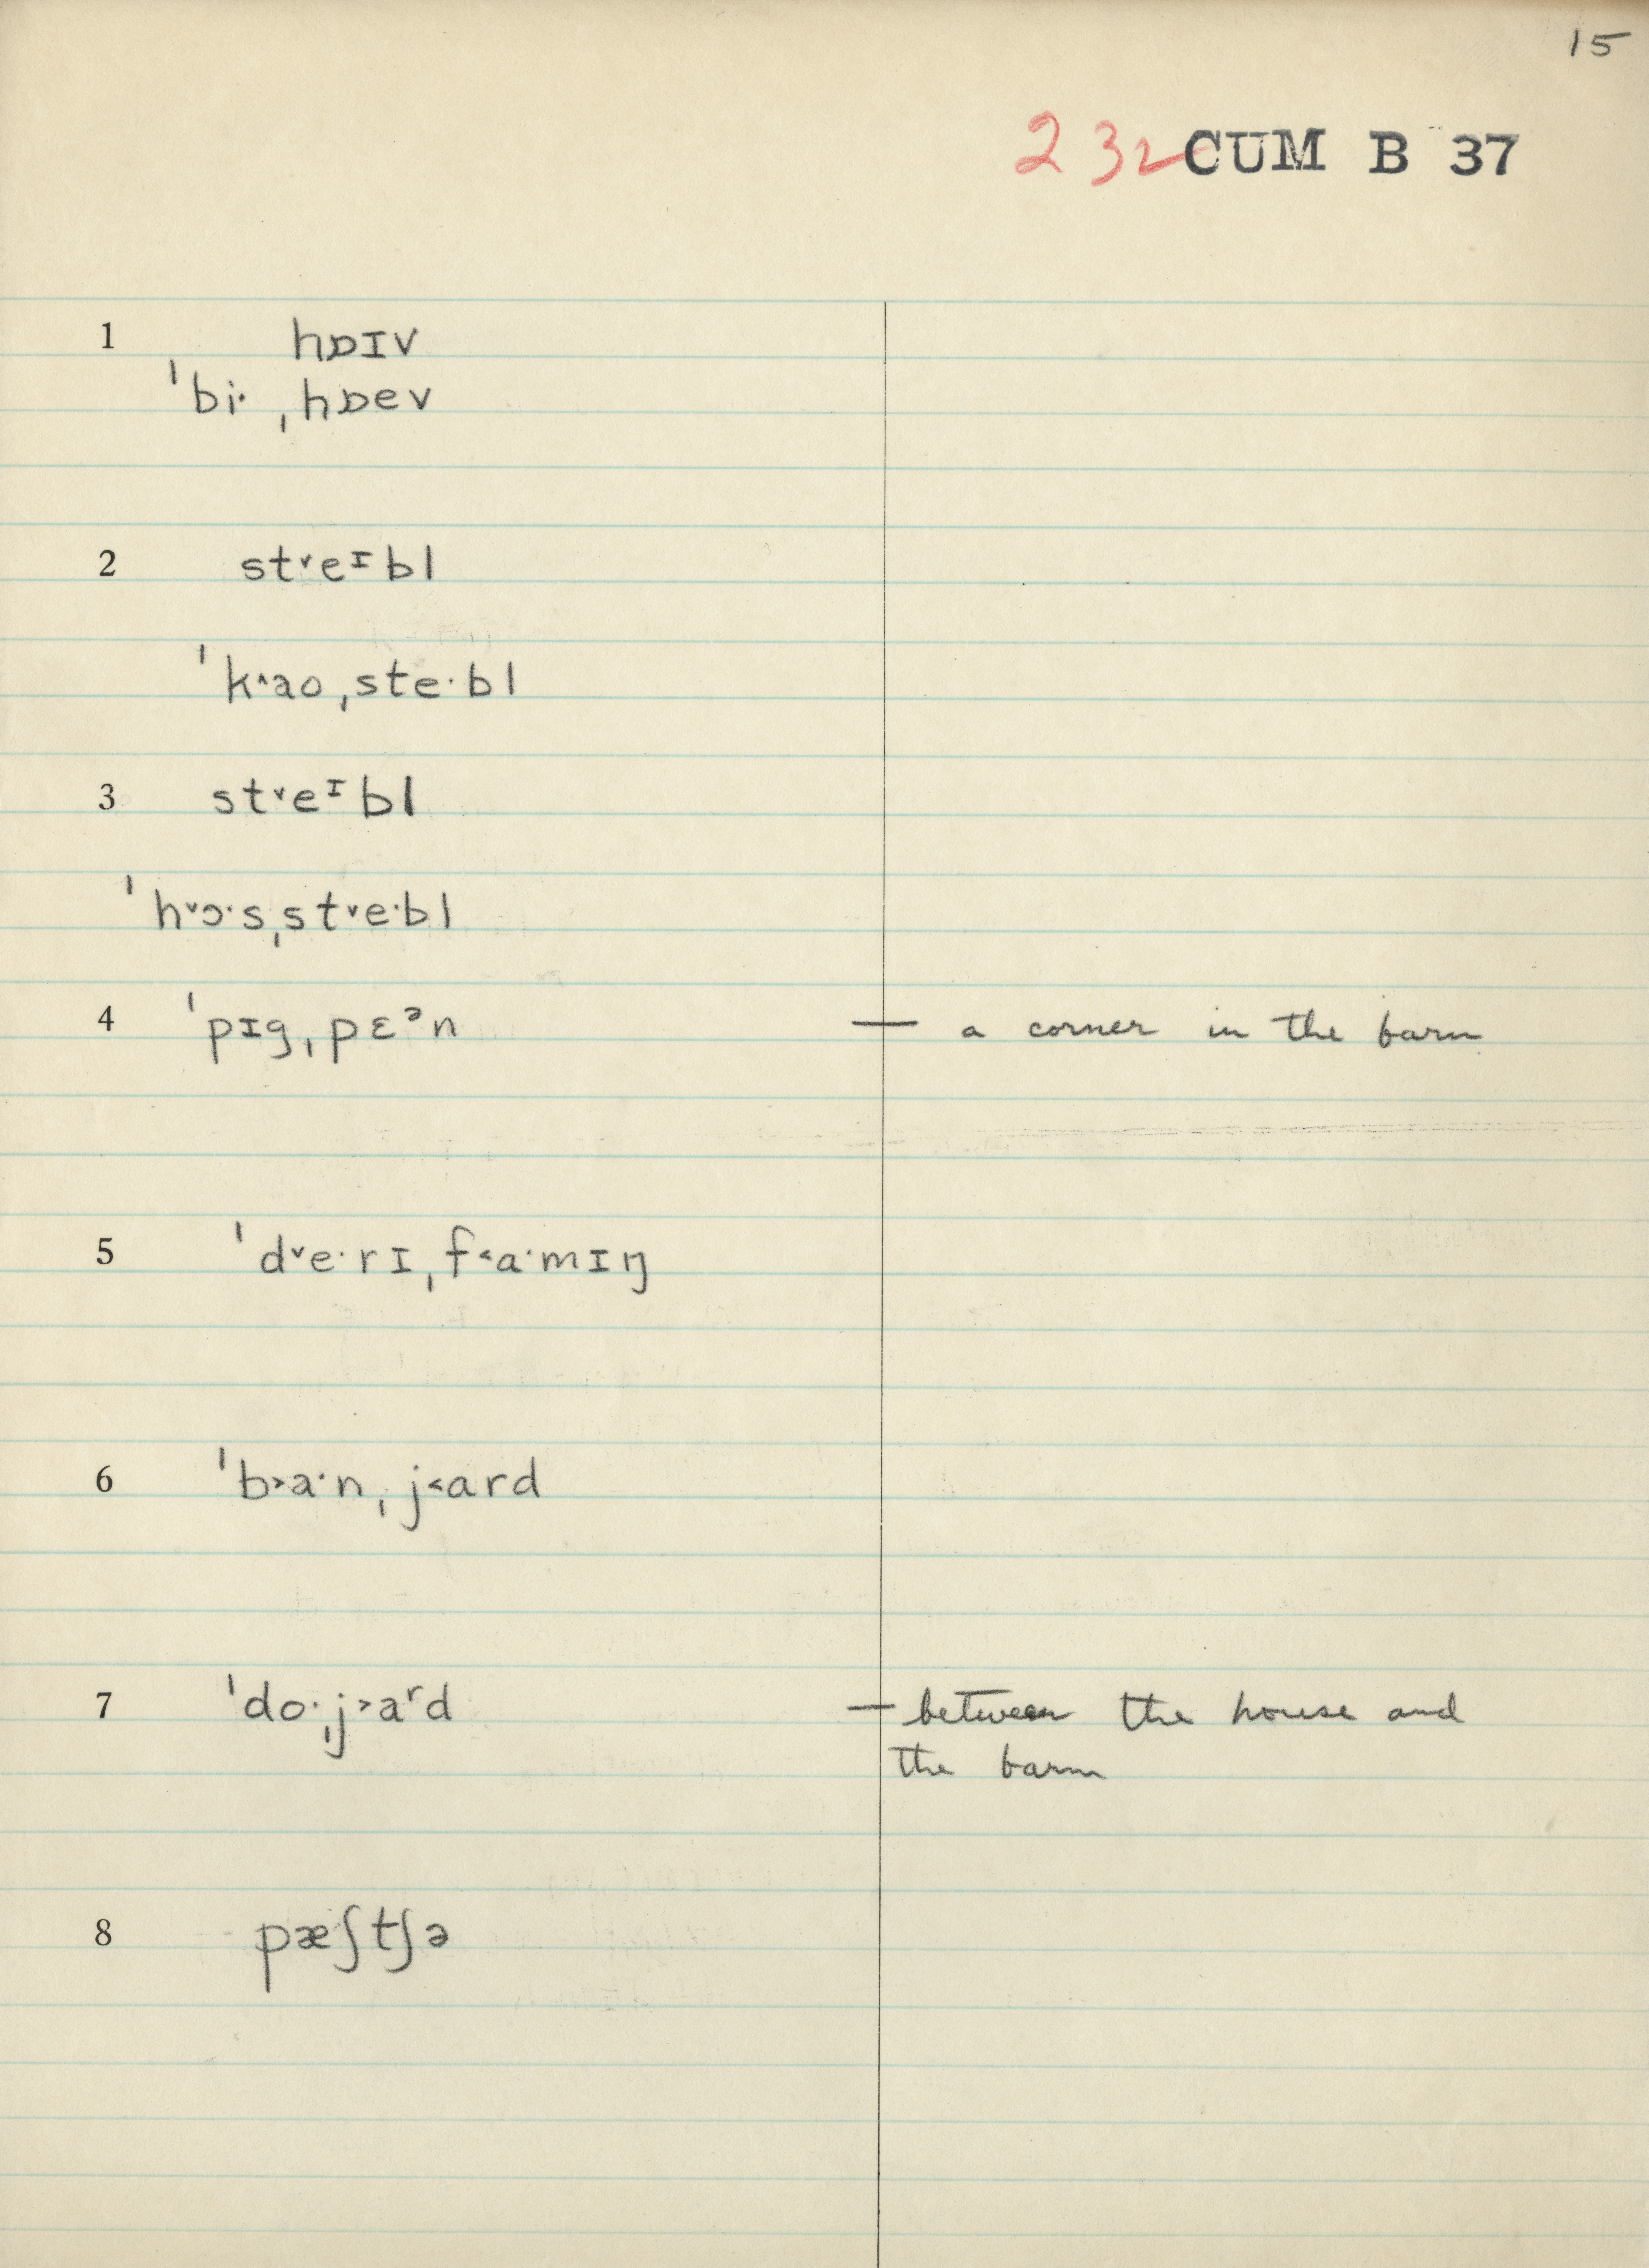 15
232 CUM B 37
1 hɒɪv
ˈbi· ˌhɒev
2 st˅eᶦbl
ˈk˄ao ˌste·bl
3 st˅eᶦbl
ˈh˅ɔ·sˌst˅e·bl
4 ˈpɪgˌpɛᵊn — a corner in the barn
5 ˈd˅e·rɪˌf˂a·mɪŋ
6 ˈb˃a·nˌj˂ard
7 ˈdo·ˌj˃aʳd — between the house and
the barn
8 pæʃtʃə